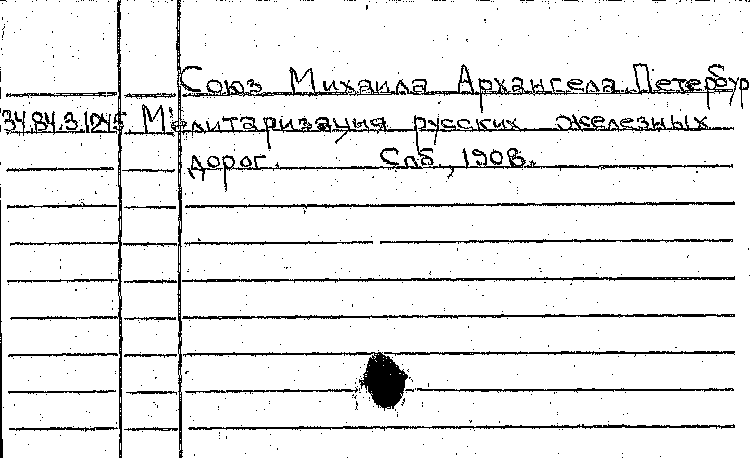 Союз Михаила Архангела. Петербур
34.84.3.1045. Милитаризация русских железных
дорог. Спб., 1908.